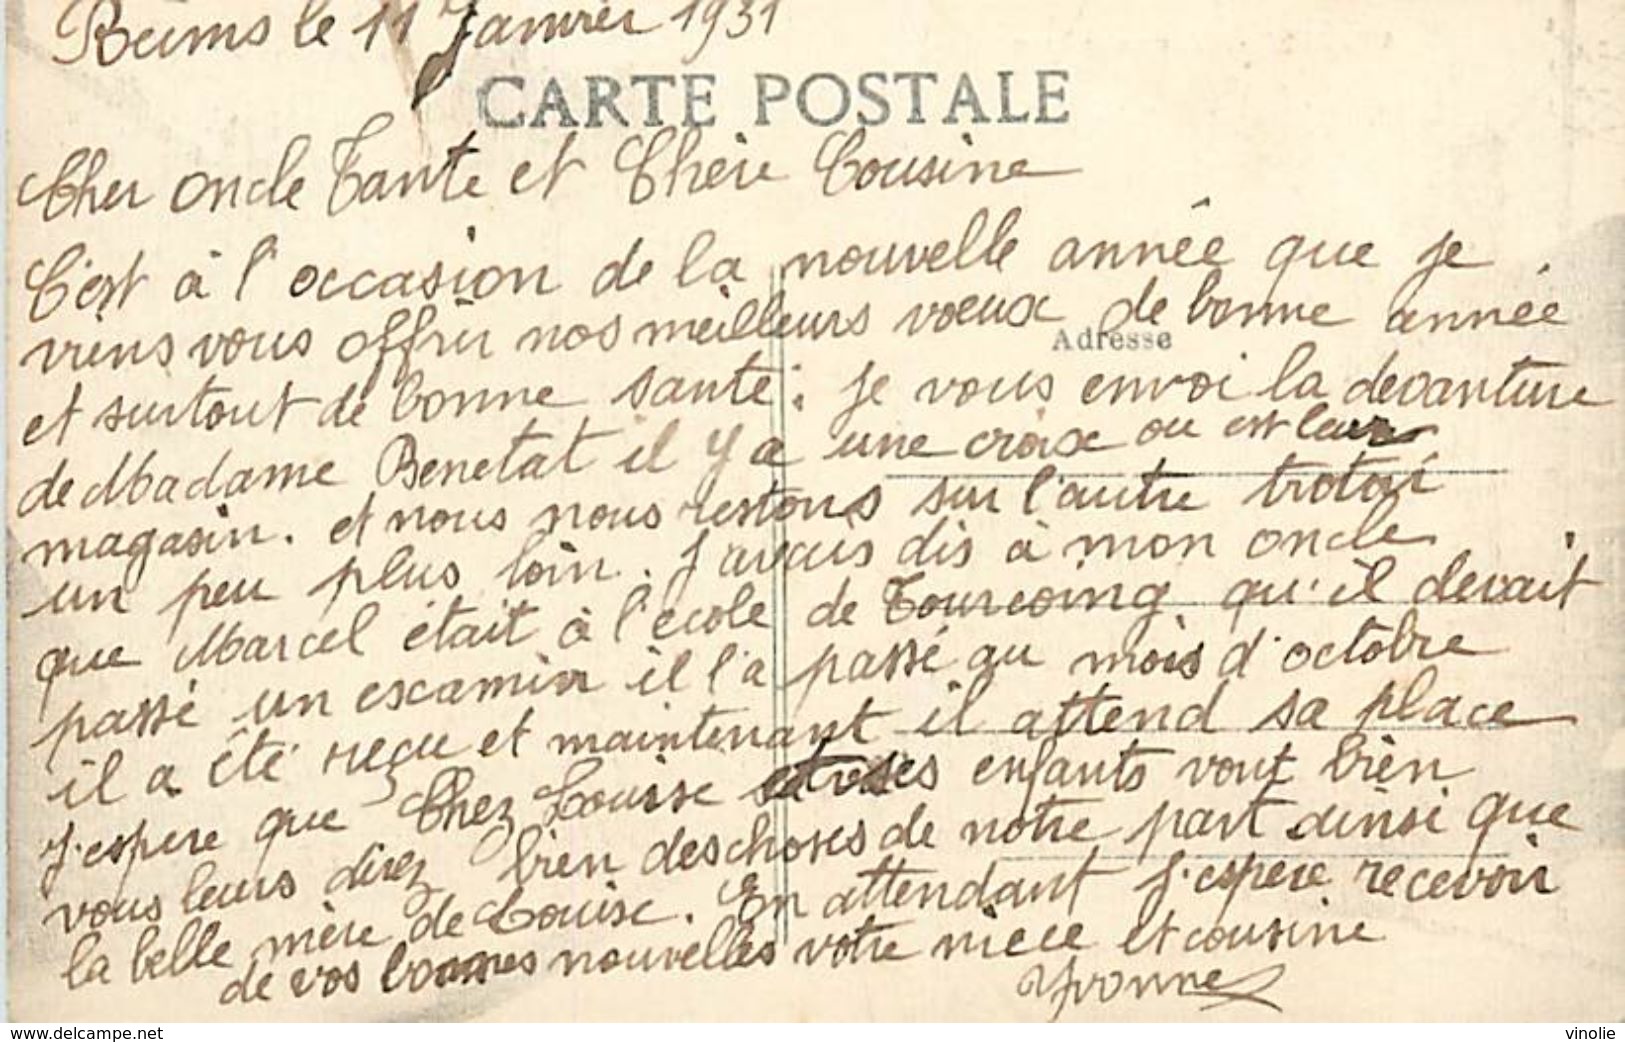 Reims le 11 Janvier 1931
CARTE POSTALE
Cher oncle Tante et Chère Cousine
C'est à l'occasion de la nouvelle année que je
viens vous offrir nos meilleurs voeux de bonne année
Adresse
et surtout de bonne santé; je vous envoi la devanture
de Madame Benetat il y a une croix ou est leur
magasin. et nous nous restons sur l'autre trotoir
un peu plus loin. J'avais dis à mon oncle
que Marcel était à l'école de Tourcoing qu'il devait
passé un examin il l'a passé au mois d'octobre
il a été reçu et maintenant il attend sa place
J'espere que Chez Louise et ses enfants vont bien
vous leurs direz bien des choses de notre part ainsi que
la belle mère de Louise. En attendant J'espere recevoir
de vos bonnes nouvelles votre niece et cousine
Yvonne
www.delcampe.net
vinolie